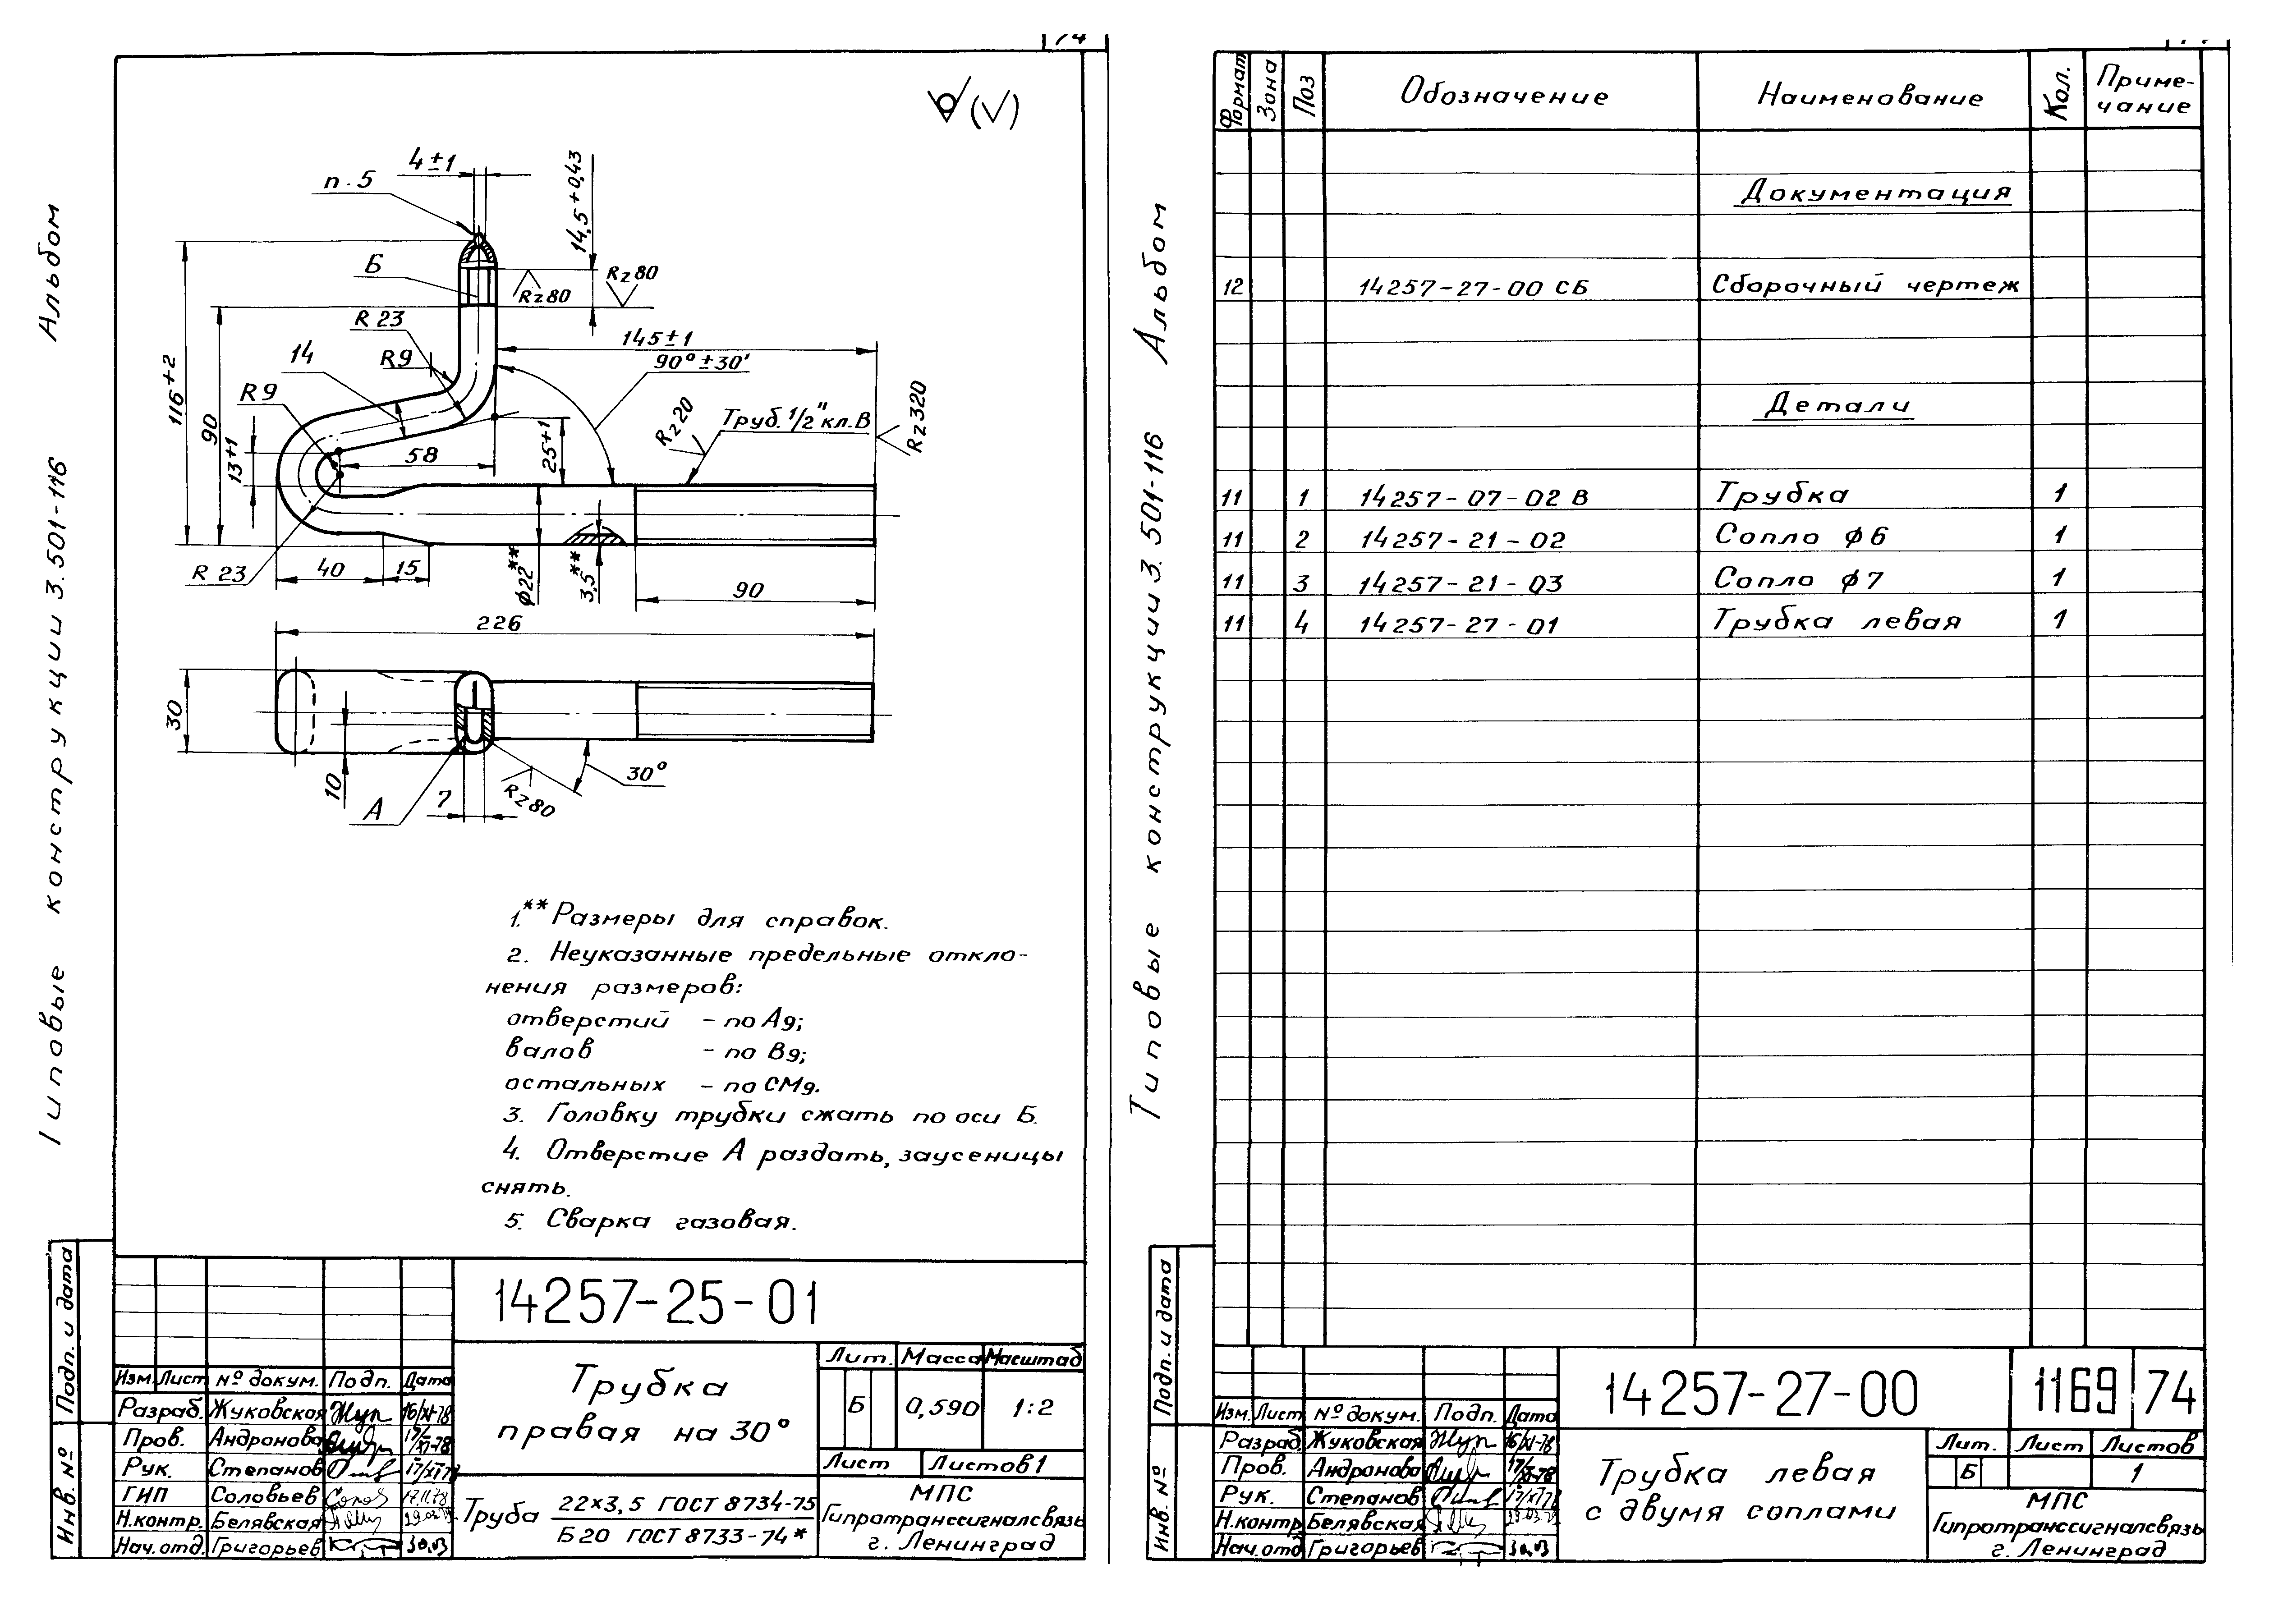 74
Альбом
Типовые конструкции 3.501-116
4±1
п.5
14,5+0,43
Б
Rz80
Rz80
R23
14
R9
R9
145±1
90°±30'
116+2
90
13+1
58
25+1
Rz20
Труб. 1/2" кл.В
Rz320
R23
40
15
ф22**
3,5**
90
226
30
10
А
7
Rz80
30°
1.** Размеры для справок.
2. Неуказанные предельные откло-
нения размеров:
отверстий - по А9;
валов - по В9;
остальных - по СМ9.
3. Головку трубки сжать по оси Б.
4. Отверстие А раздать, заусеницы
снять.
5. Сварка газовая.
Подп. и дата
Инв. №
14257-25-01
Изм. Лист № докум. Подп. Дата
Разраб. Жуковская 16/XI-78
Пров. Андронова 17/XI-78
Рук. Степанов 17/XI78
ГИП Соловьев 17.11.78
Н.контр. Белявская
Нач.отд. Григорьев 30.03
Трубка
правая на 30°
Лит. Масса Масштаб
Б 0,590 1:2
Лист Листов 1
Труба 22×3,5 ГОСТ 8734-75
Б20 ГОСТ 8733-74*
МПС
Гипротранссигналсвязь
г. Ленинград
Альбом
Типовые конструкции 3.501-116
Формат Зона Поз Обозначение Наименование Кол. Приме-
чание
Документация
12 14257-27-00 СБ Сборочный чертеж
Детали
11 1 14257-07-02 В Трубка 1
11 2 14257-21-02 Сопло ф6 1
11 3 14257-21-03 Сопло ф7 1
11 4 14257-27-01 Трубка левая 1
Подп. и дата
Инв. №
14257-27-00 1169 74
Изм. Лист № докум. Подп. Дата
Разраб. Жуковская 16/XI-78
Пров. Андронова 17/XI-78
Рук. Степанов 17/XI78
Н.контр. Белявская
Нач.отд Григорьев 30.03
Трубка левая
с двумя соплами
Лит. Лист Листов
Б 1
МПС
Гипротранссигналсвязь
г. Ленинград